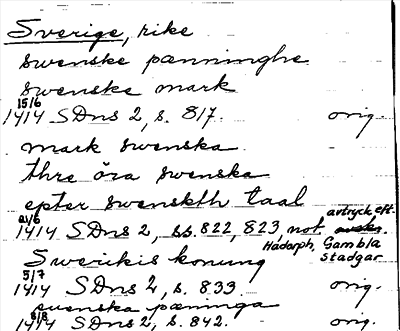 Sverige, rike
swenske pænninghe
swenske mark
15/6
1414 SDns 2, s. 817. orig.
mark swenska
thre öra swenska
epter swenskth taal
21/6 avtryck eft.
1414 SDns 2, ss. 822, 823, not.
Hadorph, Gambla
Stadgar
Swerikis konung
5/7
1414 SDns 2, s. 833 orig.
swenska pæninga
8/8
1414 SDns 2, s. 842. orig.